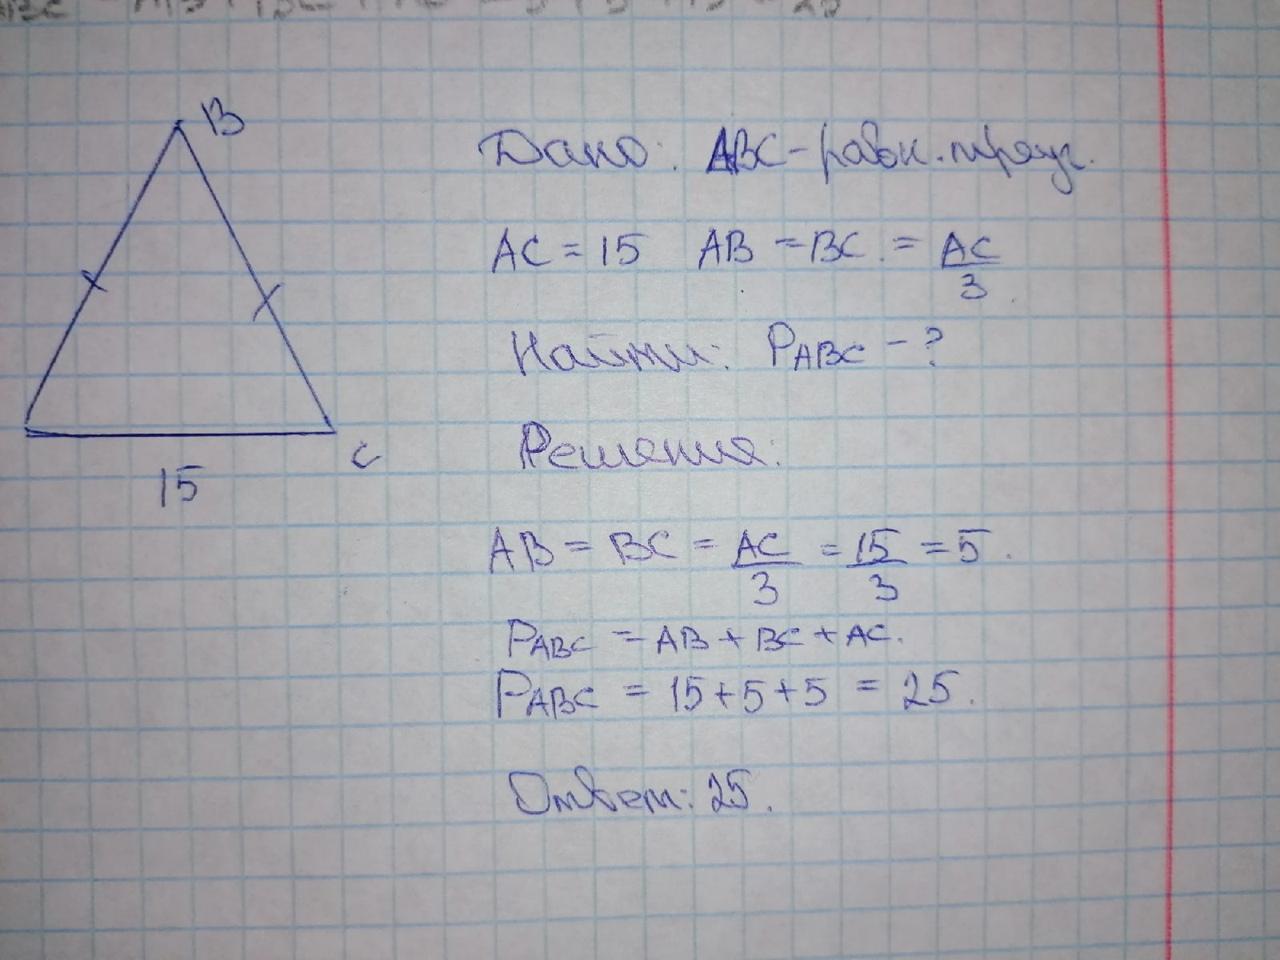 B
C
15
Дано: ABC-равн.треуг.
AC = 15 AB = BC. = AC/3.
Найти: PABC - ?
Решения:
AB = BC = AC/3 = 15/3 = 5.
PABC = AB + BC + AC.
PABC = 15+5+5 = 25.
Ответ: 25.